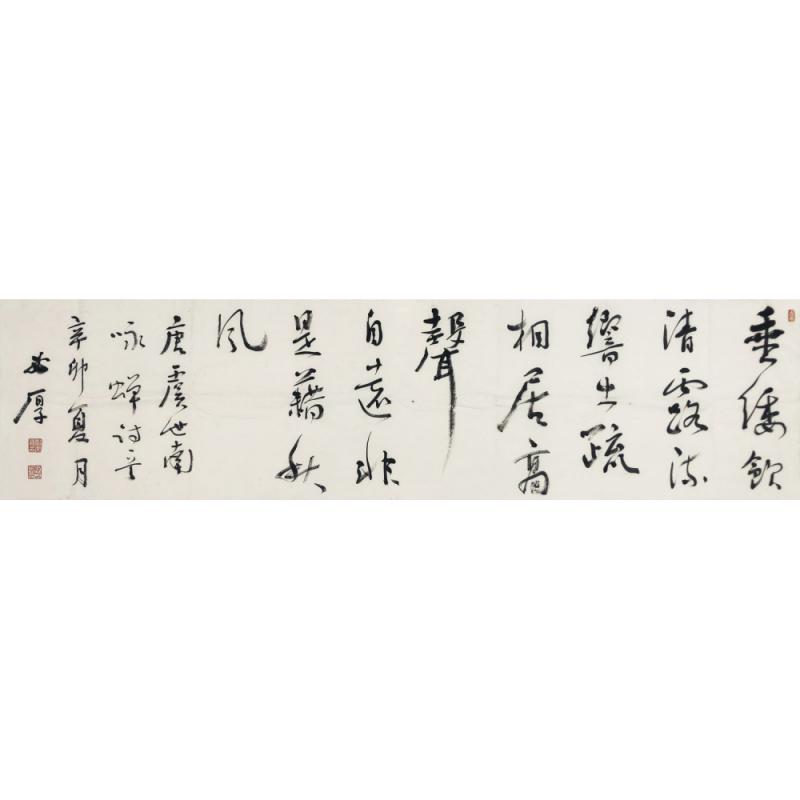 垂緌飲
清露流
響出疏
桐居高
聲
自遠非
是藉秋
風
唐虞世南
咏蟬詩意
辛卯夏月
厚